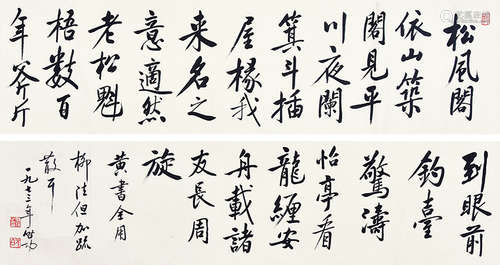 松風閣
依山築
閣見平
川夜闌
箕斗插
屋椽我
来名之
意適然
老松魁
梧數百
年斧斤
到眼前
釣臺
驚濤
怡亭看
龍纏安
舟載諸
友長周
旋
黄書全用
柳法但加疏
散耳
一九七三年啟功